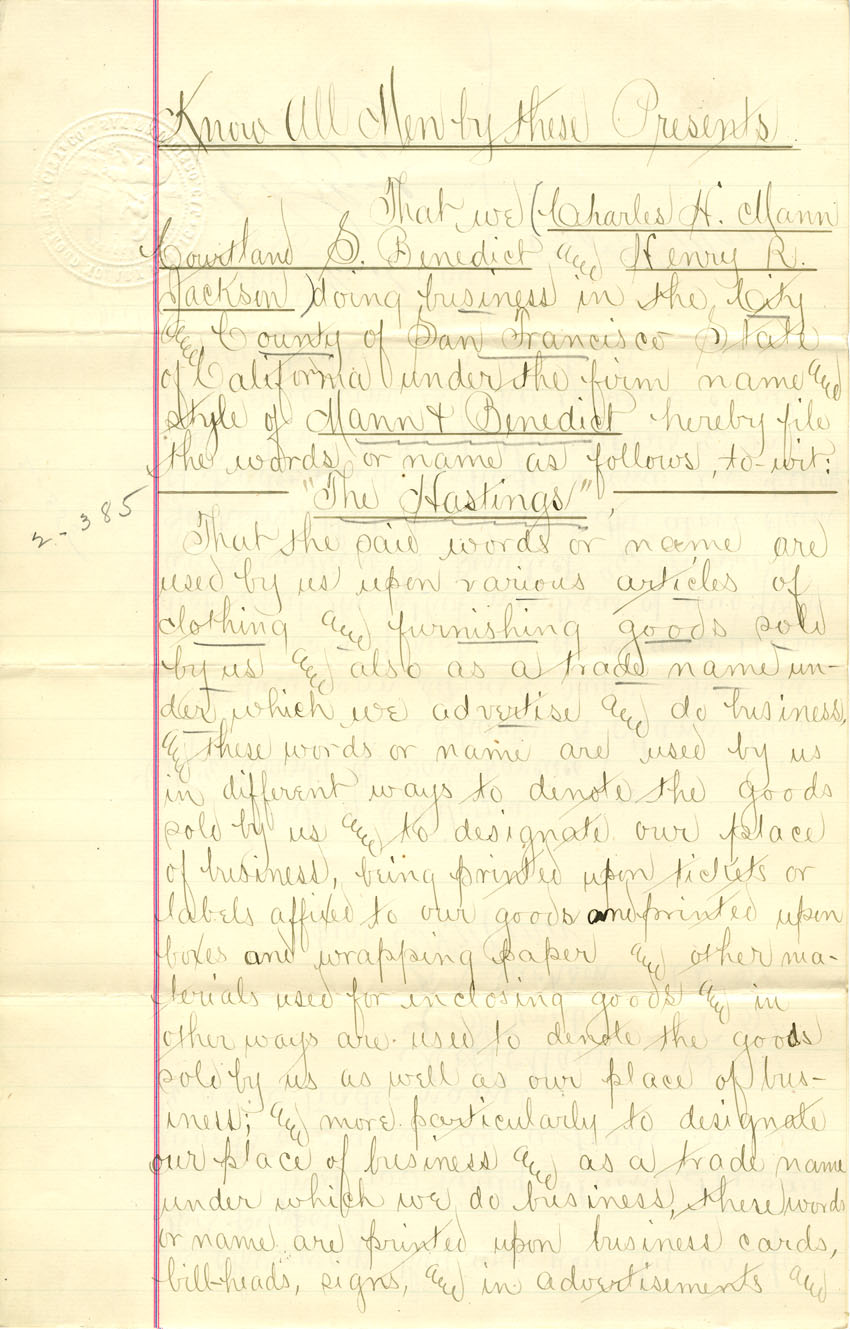 Know All Men by these Presents
That we (Charles H. Mann
Courtland S. Benedict and Henry R.
Jackson) doing business in the City
and County of San Francisco State
of California under the firm name and
style of Mann & Benedict hereby file
the words or name as follows, to-wit:
"The Hastings",
2-385
That the said words or name are
used by us upon various articles of
clothing and furnishing goods sold
by us and also as a trade name un-
der which we advertise and do business,
and these words or name are used by us
in different ways to denote the goods
sold by us and to designate our place
of business, being printed upon tickets or
labels affixed to our goods and printed upon
boxes and wrapping paper and other ma-
terials used for inclosing goods and in
other ways are used to denote the goods
sold by us as well as our place of bus-
iness; and more particularly to designate
our place of business and as a trade name
under which we do business, these words
or name are printed upon business cards,
bill-heads, signs, and in advertisements and